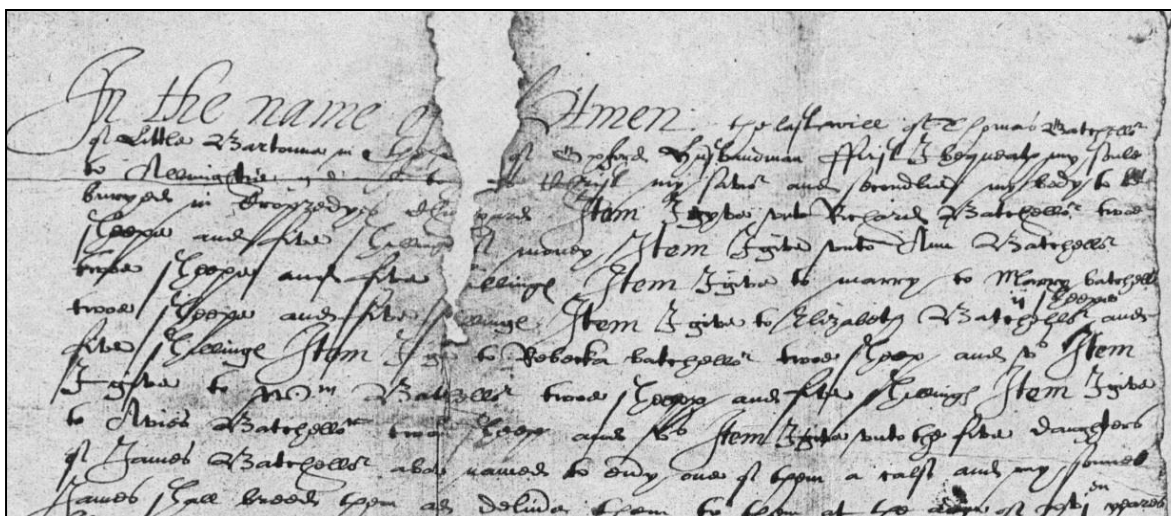 In the name o Amen the last will of Thomas Batchellr
of Little Bartonne in of Oxford Husbandman ffirst I bequeath my soule
to Allmightie Christ my savior and secondlie my body to be
buryed in Cropredye Item I gyve unto Richard Batchellr twoe
sheepe and five shillinges money Item I give unto Ann Batchellr
twoe sheepe and five illinges Item I give to marry to Marry batchellr
twoe sheepe and five llinges Item I give to Elizabeth Batchellr ij sheepe and
five shillinges Item I gi to Rebecka batchellr twoe sheep and vs Item
I give to Wm Batchellr twoe sheepe and five shillinges Item I give
to Avies Batchellr twoe sheep and vs Item I give unto the five daughters
of James Batchellr above named to every one of them a calfe and my sonne
James shall breed them and deliver them to them at the of yeares